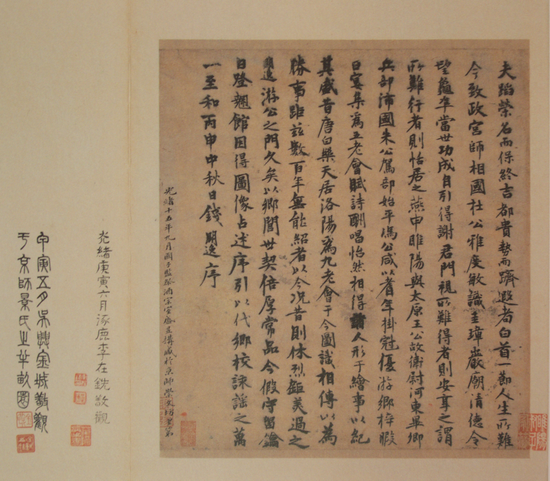 夫蹈榮名而保終吉都貴勢而躋遐耇白首一節人生所難
今致政宮師相國杜公雅度敏識圭璋巖廟清德令
望龜準當世功成自引得謝君門視所難得者則安享之謂
所難行者則恬居之燕申睢陽與太原王公故衛尉河東畢卿
兵部沛國朱公駕部始平馮公咸以耆年掛冠優游鄉梓暇
日宴集為五老會賦詩酬唱怡然相得人形于繪事以紀
其盛昔唐白樂天居洛陽為九老會于今圖識相傳以為
勝事距茲數百年無能紹者以今況昔則休烈鉅美過之
明逸游公之門久矣以鄉閭世契倍厚常品今假守留鑰
日登翹館因得圖像占述序引以代鄉校詠謠之萬
一至和丙申中秋日錢明逸序
光緒十五年九月國子監祭酒宗室盛昱
光緒庚寅六月涿鹿李在銑敬觀
甲寅五月吳興金城敬觀
于京師景氏之半畝園